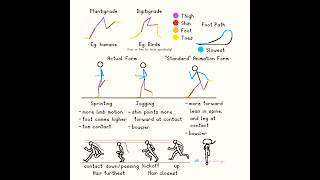 Plantigrade
Digitigrade
Thigh
Shin
Foot
Toes
Foot Path
Slowest
Eg. humans
Eg. Birds
Actual Form
"Standard" Animation Form
Sprinting
- more limb motion
- foot comes higher
- toe contact
Jogging
- shin points more
forward at contact
- bouncier
- more forward
lean in spine,
and leg at
contact
- bouncier
contact
down/passing
kickoff
up
Hair furthest
Hair closest